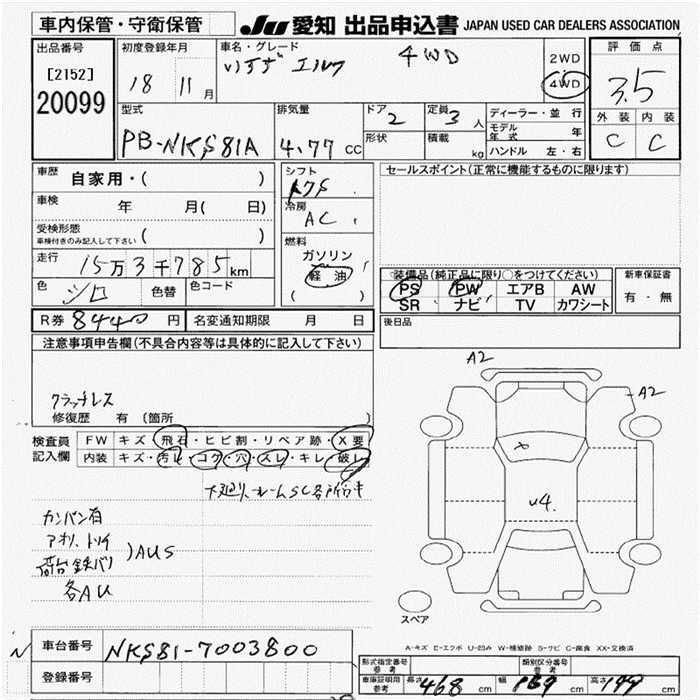 車内保管・守衛保管
JU 愛知 出品申込書 JAPAN USED CAR DEALERS ASSOCIATION
出品番号
[2152]
20099
初度登録年月
18 11月
車名・グレード
いすゞ エルフ 4WD
2WD
4WD
評価点
3.5
外装 内装
C C
型式
PB-NKS81A
排気量
4.77 CC
ドア
2
形状
定員
3人
積載
kg
ディーラー・並行
モデル年式 年
ハンドル 左・右
車歴
自家用・( )
車検
年 月( 日)
受検形態
車検付きのみ記入して下さい ( )
走行
15万3千785km
色
シロ
色替
色コード
シフト
冷房
AC
燃料
ガソリン
軽油
( )
セールスポイント(正常に機能するものに限ります)
装備品(純正品に限り○をつけてください)
PS PW エアB AW
SR ナビ TV カワシート
新車保証書
有・無
R券 8440円
名変通知期限 月 日
後日品
注意事項申告欄(不具合内容等は具体的に記入して下さい)
クラッチレス
修復歴 有(箇所 )
検査員記入欄
FW キズ・飛石・ヒビ割・リペア跡・X要
内装 キズ・汚レ・コゲ・穴・スレ・キレ・破レ
カンバン有
アオリ、トリイ
荷台鉄バリ )AUS
各AU
A2
A2
X
U4.
スペア
A-キズ E-エクボ U-凹み W-補修跡 S-サビ C-腐食 XX-交換済
車台番号 NKS81-7003800
登録番号
形式指定番号 参考
類別区分番号 参考
車庫証明用参考 長さ 468 cm 幅 169 cm 高さ cm